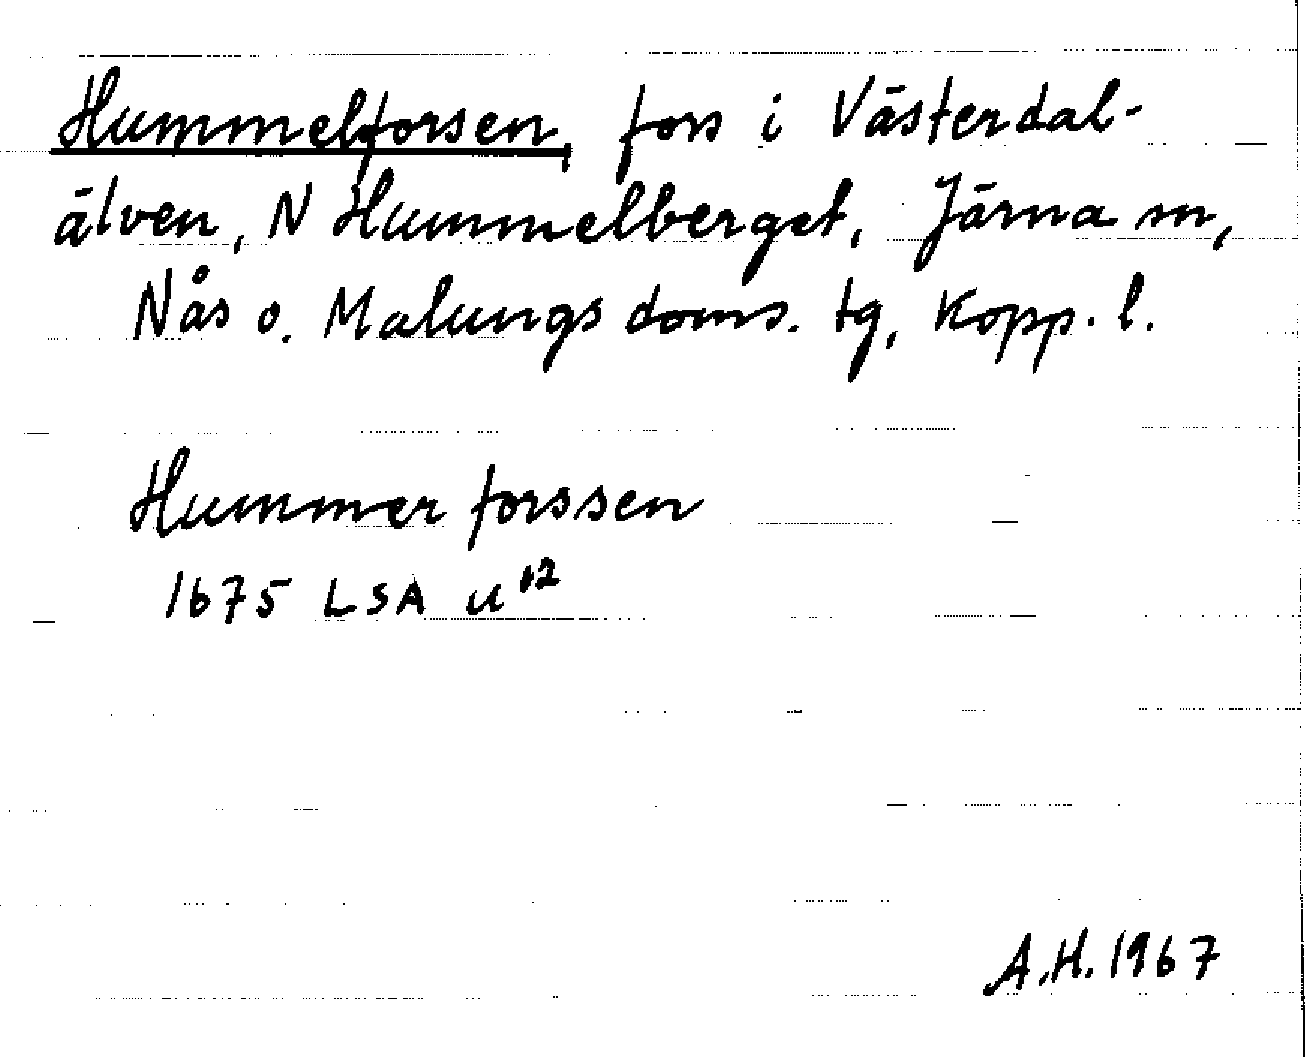 Hummelforsen, fors i Västerdal-
älven, N Hummelberget, Järna sn,
Nås o. Malungs doms. tg, Kopp. l.
Hummer forssen
1675 LSA u¹²
A.H. 1967